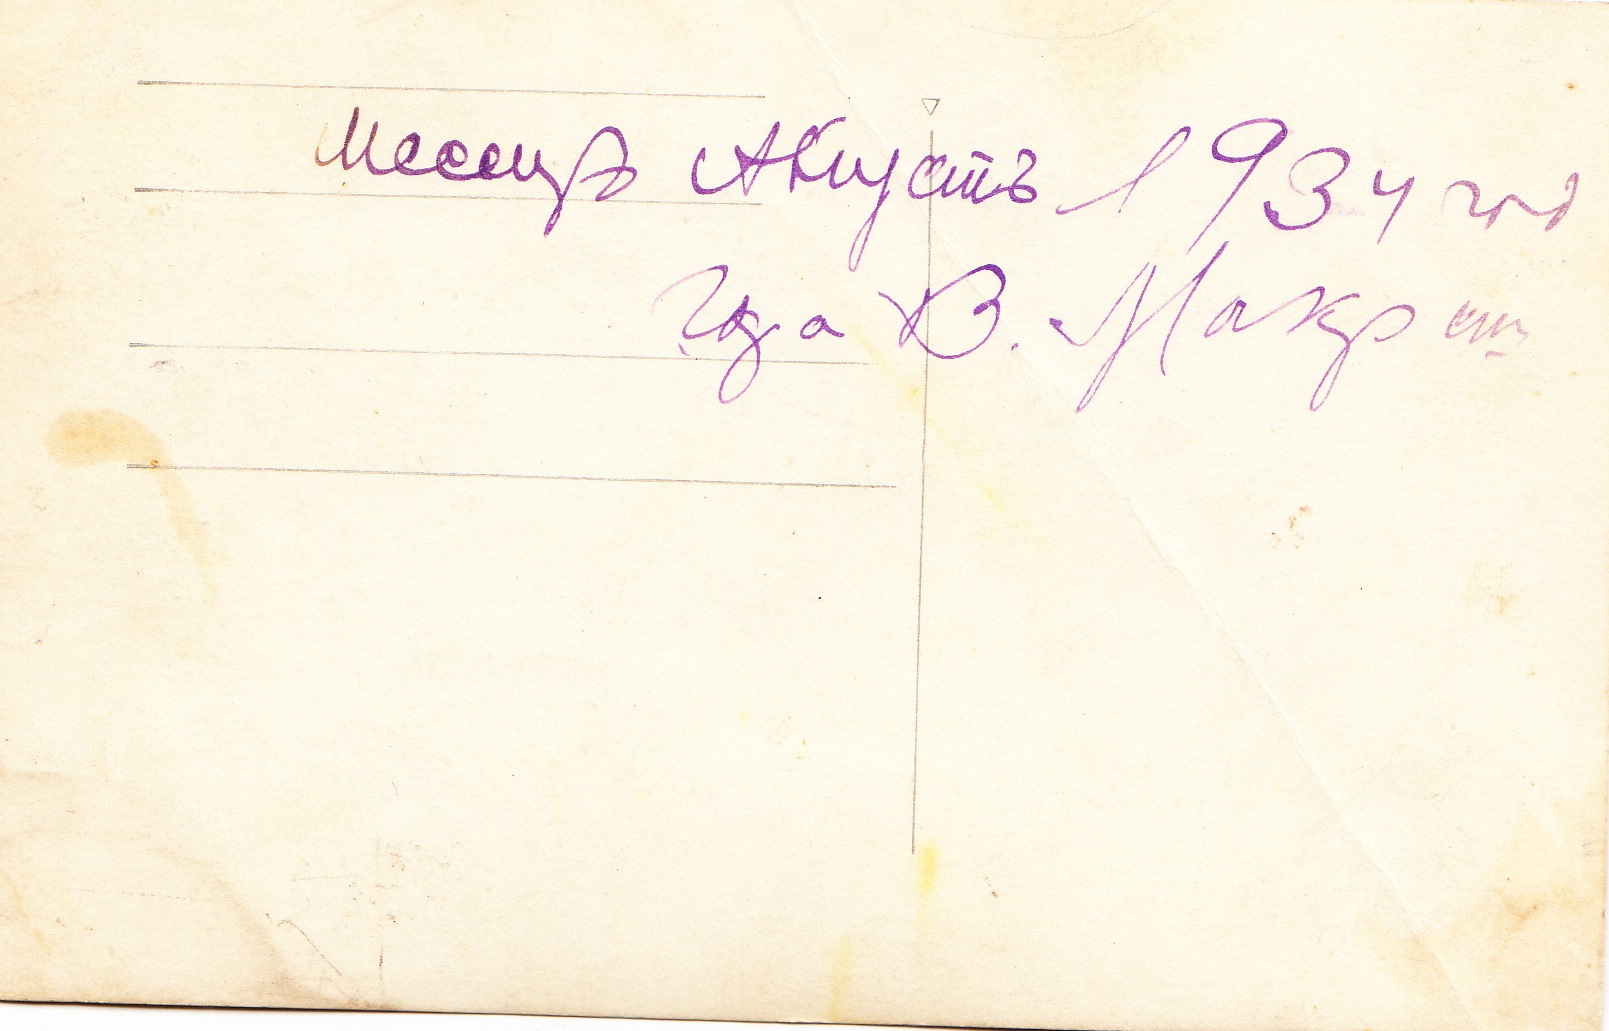 Месецъ Акустъ 1934 год
года В. Макр